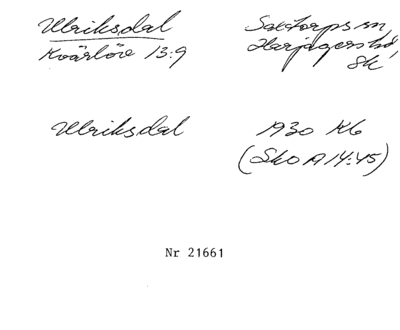 Ulriksdal
Kvärlöv 13:9
Saxtorps sn,
Harjagers hd,
Sk
Ulriksdal
1930 Kb
(Sko A 14:45)
Nr 21661